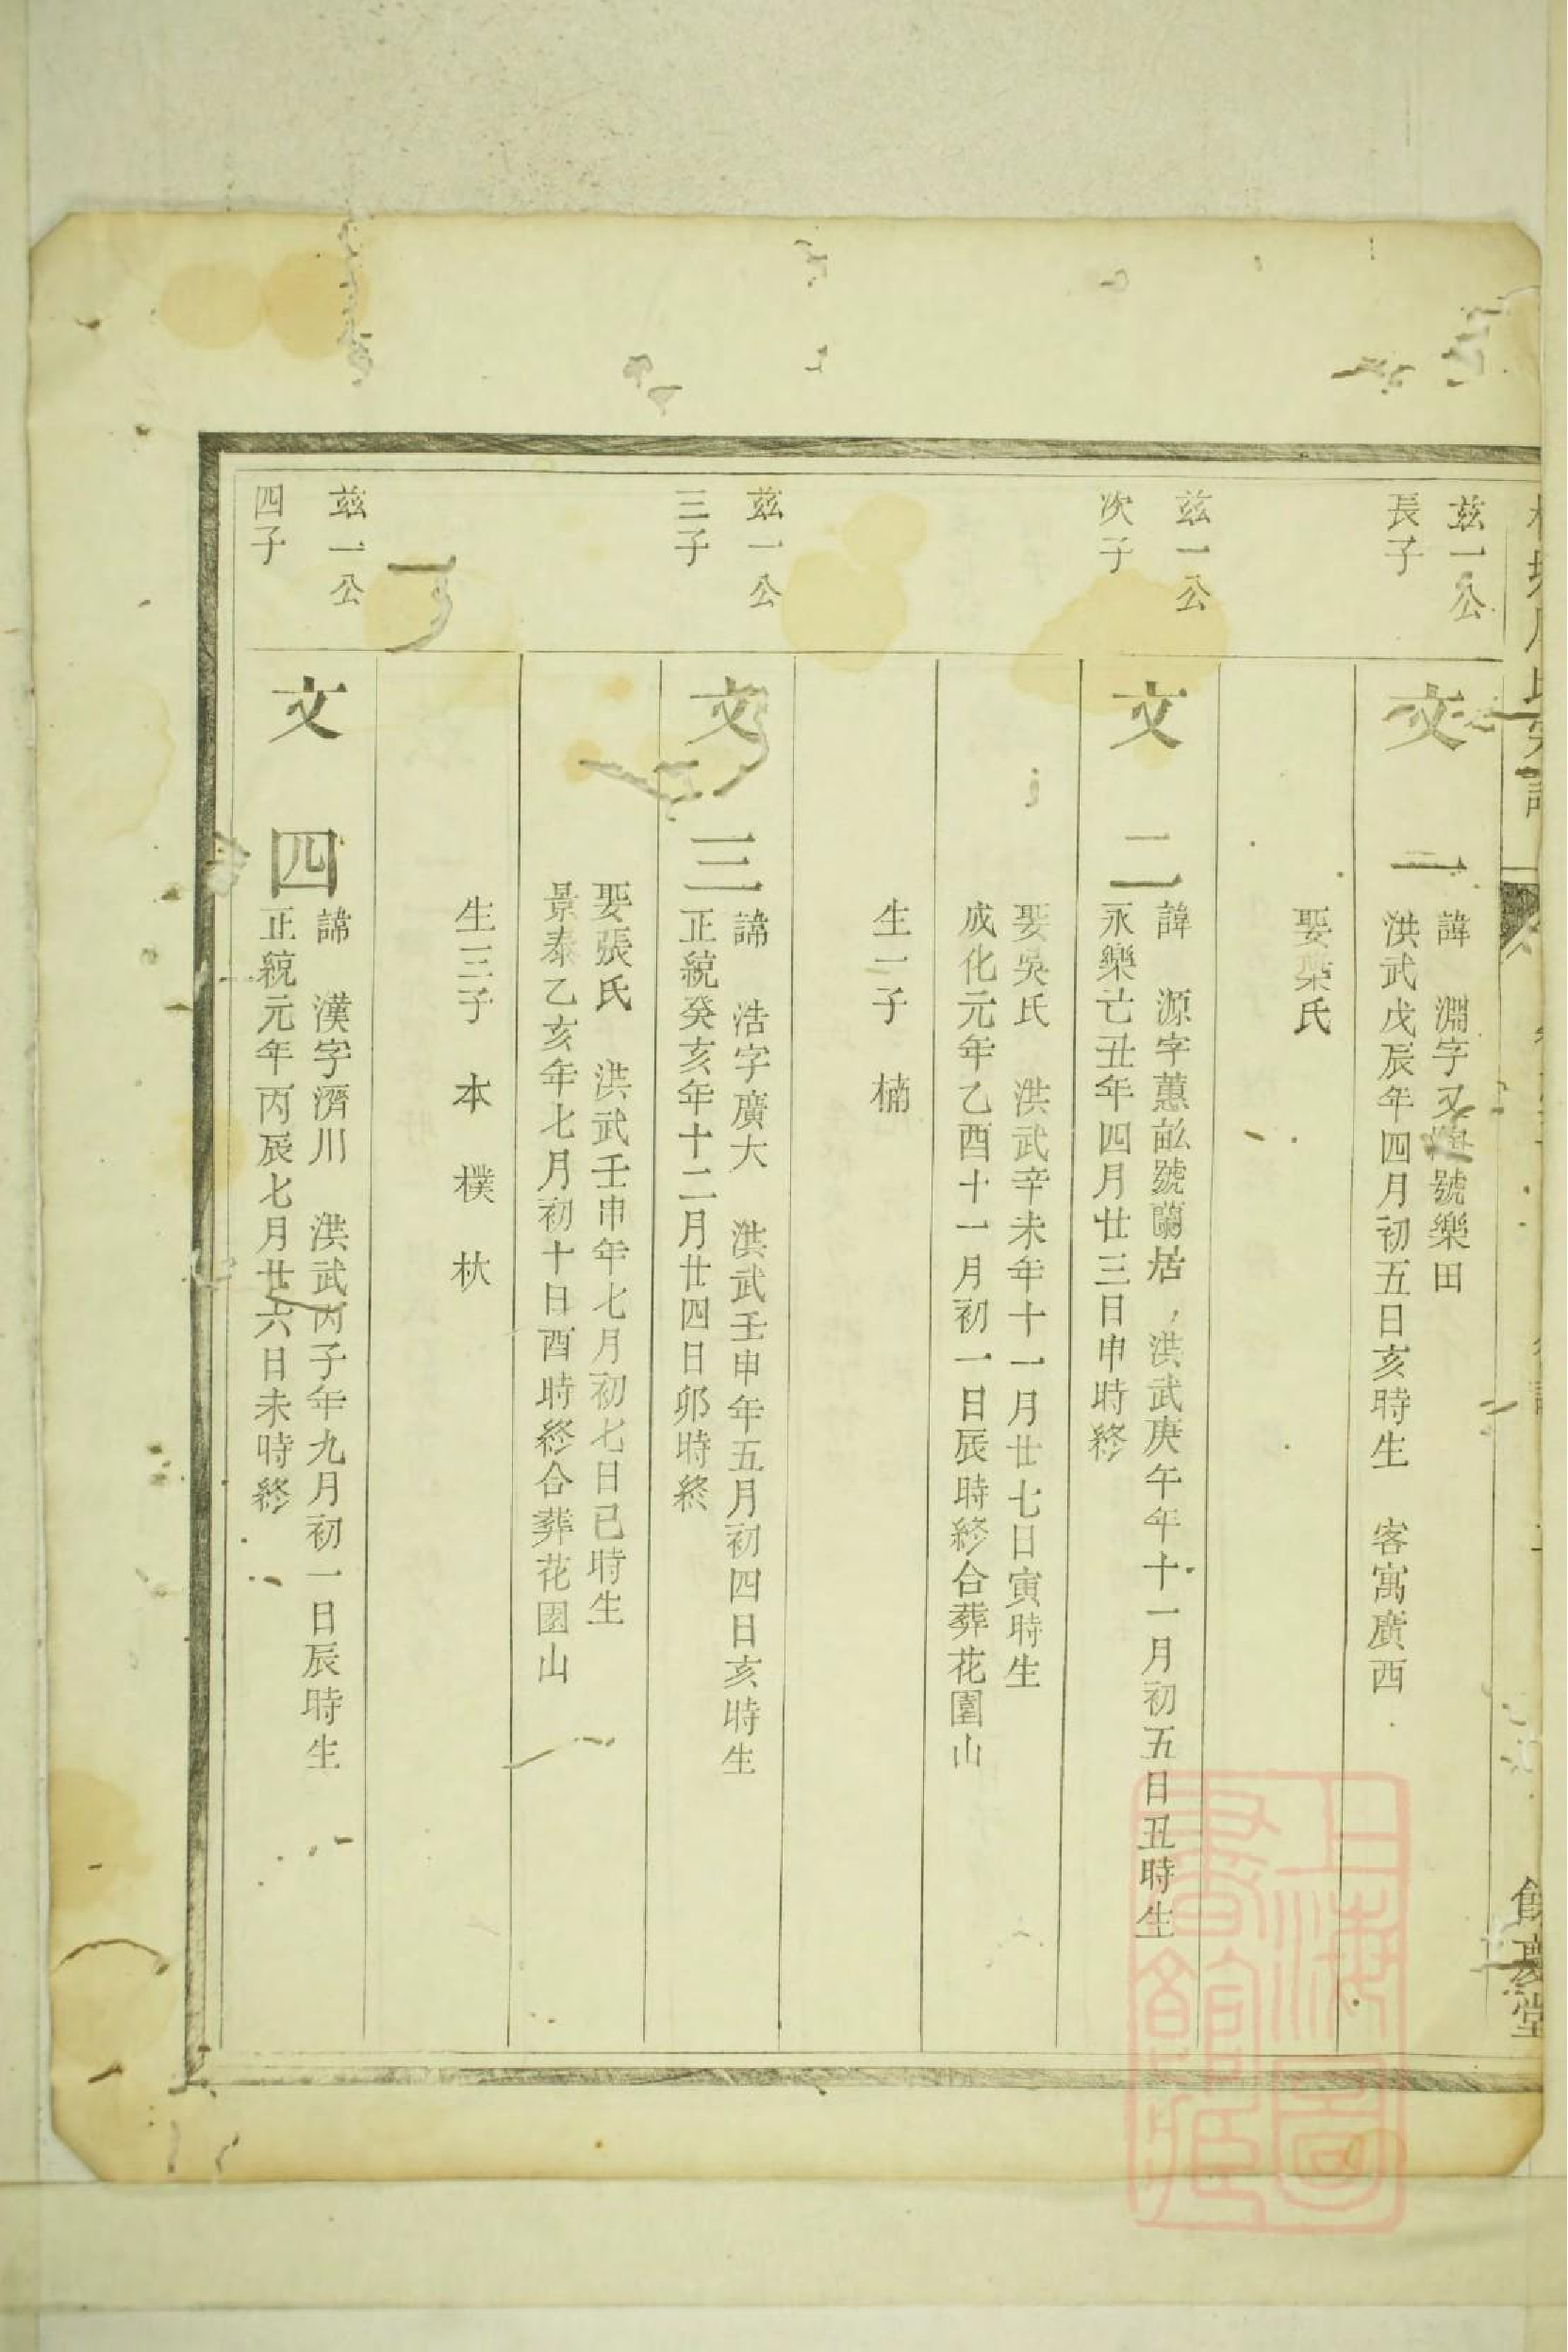 氏宗譜
餘慶堂
茲一公
長子
文一
諱 淵字又 號樂田
洪武戊辰年四月初五日亥時生 客寓廣西
娶葉氏
茲一公
次子
文二
諱 源字蕙畝號蘭居 洪武庚午年十一月初五日丑時生
永樂亡丑年四月廿三日申時終
娶吳氏 洪武辛未年十一月廿七日寅時生
成化元年乙酉十一月初一日辰時終合葬花園山
生一子 楠
茲一公
三子
文三
諱 浩字廣大 洪武壬申年五月初四日亥時生
正統癸亥年十二月廿四日卯時終
娶張氏 洪武壬申年七月初七日已時生
景泰乙亥年七月初十日酉時終合葬花園山
生三子 本 樸 杕
茲一公
四子
文四
諱 漢字濟川 洪武丙子年九月初一日辰時生
正統元年丙辰七月廿六日未時終
上海圖
書館藏